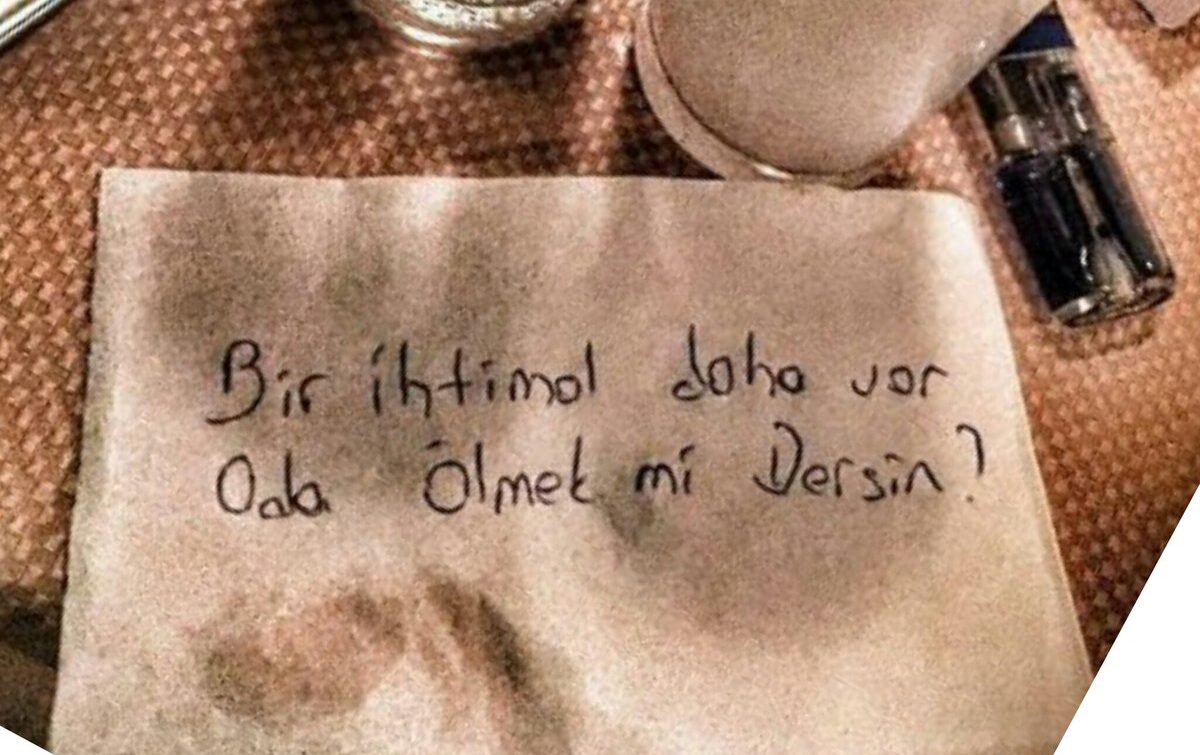 Bir ihtimal daha var
Oda Ölmek mi Dersin?